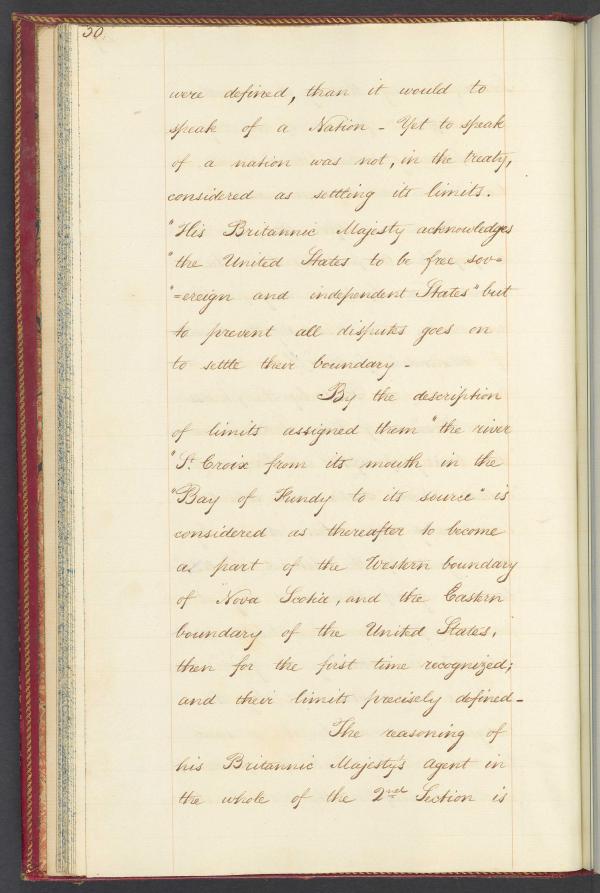 30.
were defined, than it would to
speak of a Nation - Yet to speak
of a nation was not, in the treaty,
considered as settling its limits.
"His Britannic Majesty acknowledges
"the United States to be free sov=
"=ereign and independent States" but
to prevent all disputes goes on
to settle their boundary -
By the description
of limits assigned them "the river
"St. Croix from its mouth in the
"Bay of Fundy to its source" is
considered as thereafter to become
a part of the Western boundary
of Nova Scotia, and the Eastern
boundary of the United States,
then for the first time recognized;
and their limits precisely defined -
The reasoning of
his Britannic Majesty's agent in
the whole of the 2nd Section is